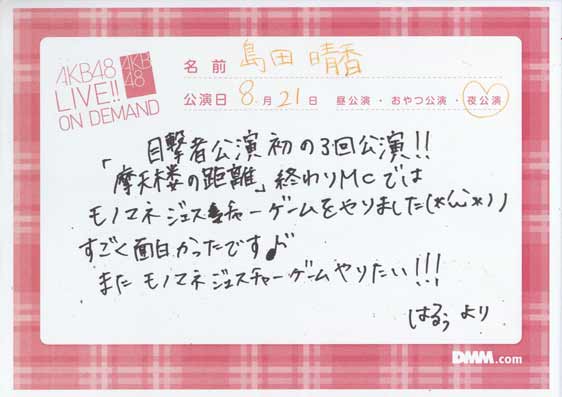 AKB48
LIVE!!
ON DEMAND
AKB
48
名前 島田 晴香
公演日 8月21日 昼公演・おやつ公演・夜公演
目撃者公演 初の3回公演!!
「摩天楼の距離」終わりMCでは
モノマネジェスチャーゲームをやりました(*´ω`*)ノ
すごく面白かったです♪
また モノマネジェスチャーゲームやりたい!!!
はるぅ より
DMM.com